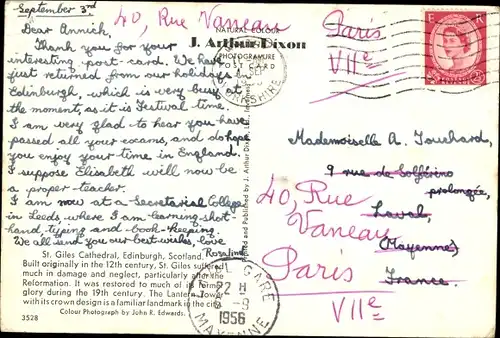 September 3rd
Dear Annick,
Thank you for your
interesting post-card. We have
just returned from our holidays in
Edinburgh, which is very busy at
the moment, as it is Festival time.
I am very glad to hear you have
passed all your exams, and do hope
you enjoy your time in England.
I suppose Elisabeth will now be
a proper teacher.
I am now at a Secretarial College
in Leeds, where I am learning short-
hand, typing and book-keeping.
We all send you our best wishes, love
Rosalind
St. Giles Cathedral, Edinburgh, Scotland.
Built originally in the 12th century, St. Giles suffered
much in damage and neglect, particularly after the
Reformation. It was restored to much of its former
glory during the 19th century. The Lantern Tower
with its crown design is a familiar landmark in the city.
3528
Colour Photograph by John R. Edwards.
NATURAL COLOUR
J. Arthur Dixon
PHOTOGRAVURE
POST CARD
SEP
YORKSHIRE
and Published by J. Arthur Dixon Ltd.
40, Rue Vaneau
Paris
VIIe
E R
Mademoiselle A. Touchard,
9 rue de Solférino
prolongée,
Laval,
(Mayenne)
France.
40, Rue
Vaneau
Paris
VIIe
GARE
22 H
9
1956
MAYENNE